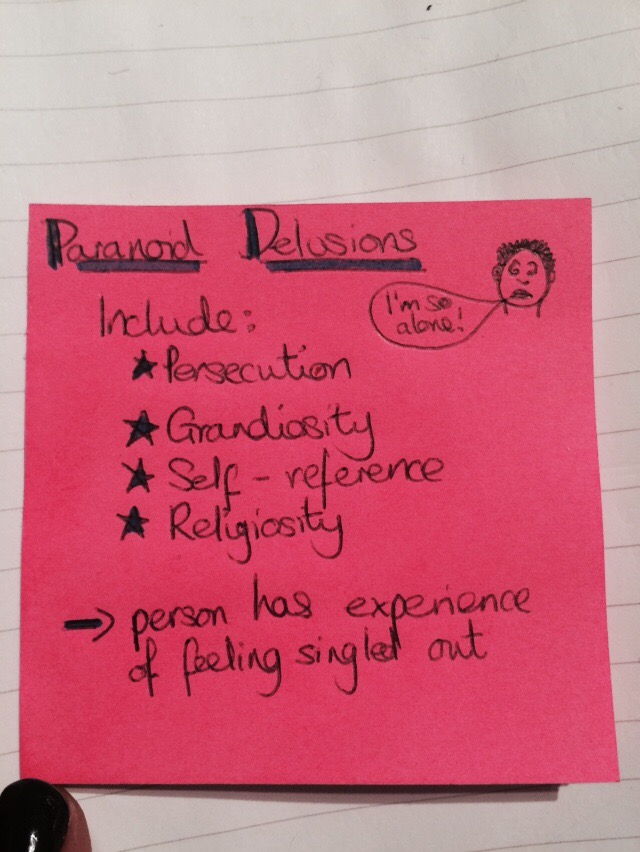 Paranoid Delusions
I'm so
alone!
Include:
★ Persecution
★ Grandiosity
★ Self-reference
★ Religiosity
→ person has experience
of feeling singled out